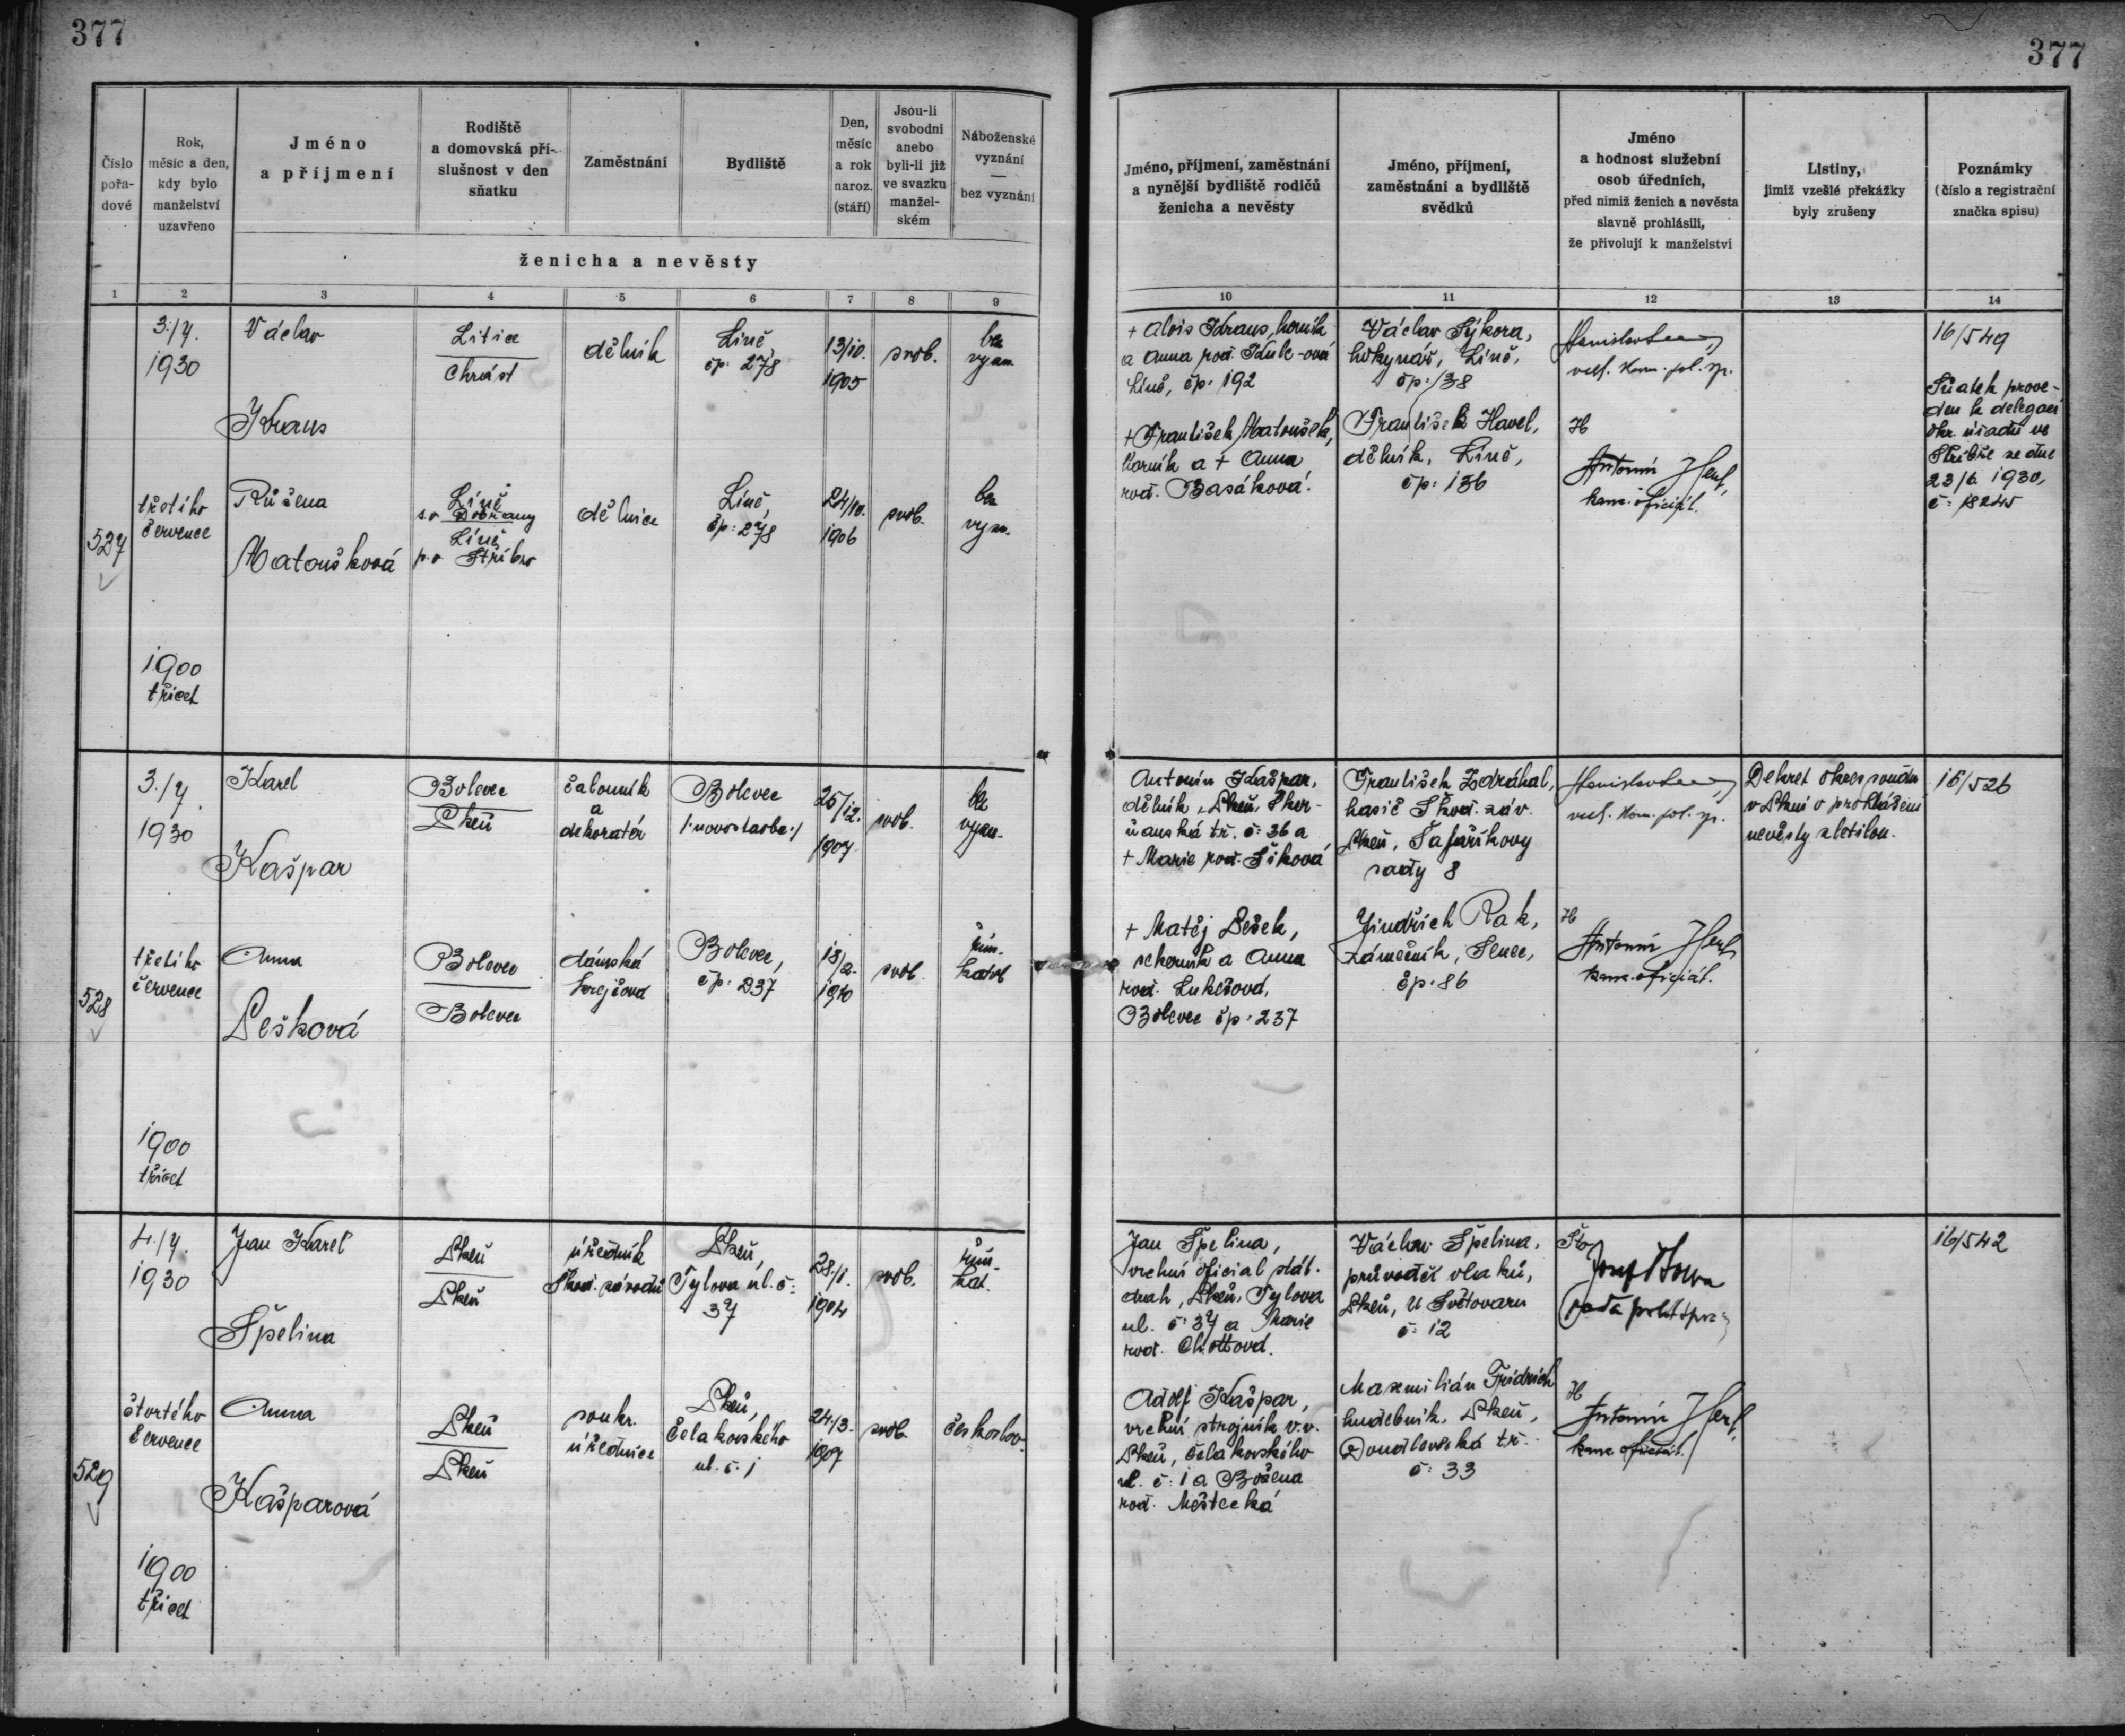 377
377
Číslo pořa- dové
Rok, měsíc a den, kdy bylo manželství uzavřeno
Jméno a příjmení
Rodiště a domovská pří- slušnost v den sňatku
Zaměstnání
Bydliště
Den, měsíc a rok naroz. (stáří)
Jsou-li svobodni anebo byli-li již ve svazku manžel- ském
Náboženské vyznání — bez vyznání
ženicha a nevěsty
Jméno, příjmení, zaměstnání a nynější bydliště rodičů ženicha a nevěsty
Jméno, příjmení, zaměstnání a bydliště svědků
Jméno a hodnost služební osob úředních, před nimiž ženich a nevěsta slavně prohlásili, že přivolují k manželství
Listiny, jimiž vzešlé překážky byly zrušeny
Poznámky (číslo a registrační značka spisu)
1 2 3 4 5 6 7 8 9 10 11 12 13 14
527
3./7.
1930
třetího
července
1900
třicet
Václav
Kraus
Litice
Chrást
dělník
Líně,
čp. 278
13/10.
1905
svob.
bez
vyzn.
Růžena
Matoušková
Líně
s.o Dobřany
Líně
p.o Stříbro
dělnice
Líně,
čp: 278
24/10.
1906
svob.
bez
vyzn.
+ Alois Kraus, horník
a Anna roz.
Líně, čp. 192
+ František Matoušek,
horník a + Anna
roz. Basáková.
Václav Sýkora,
hokynář, Líně,
čp. 138
František Havel,
dělník, Líně,
čp: 136
H
Antonín
kanc. oficiál.
16/549
Sňatek prove-
den k delegaci
okr. úřadu ve
Stříbře ze dne
23/6. 1930,
č: 18245
528
3./7.
1930
třetího
července
1900
třicet
Karel
Kašpar
Bolevec
Plzeň
čalouník
a
dekoratér
Bolevec
/:novostavba:/
25/12.
1907
svob.
bez
vyzn.
Anna
Pešková
Bolevec
Bolevec
dámská
krejčová
Bolevec,
čp. 237
13/2.
1910
svob.
řím.
katol.
Antonín Kašpar,
dělník, Plzeň, Skvr-
ňanská tř. č: 36 a
+ Marie roz. Šiková
+ Matěj Pešek,
a Anna
roz. Lukešová,
Bolevec čp. 237
František Zdráhal,
hasič Škod. záv.
Plzeň, Šafaříkovy
sady 8
Jindřich Rak,
zámečník, Senec,
čp. 86
H
Antonín
kanc. oficiál.
Dekret okres. soudu
v Plzni o prohlášení
nevěsty zletilou.
16/526
529
4./7.
1930
čtvrtého
července
1900
třicet
Jan Karel
Špelina
Plzeň
Plzeň
úředník
Škod. závodů
Plzeň,
Tylova ul. č:
37
28./1.
1904
svob.
řím.
kat.
Anna
Kašparová
Plzeň
Plzeň
soukr.
úřednice
Plzeň,
Čelakovského
ul. č. 1
24./3.
1907
svob.
českoslov.
Jan Špelina,
vrchní oficial stát.
drah, Plzeň, Tylova
ul. č: 37 a Marie
roz. Chottová.
Adolf Kašpar,
vrchní strojník v.v.
Plzeň, Čelakovského
ul. č: 1 a Božena
roz. Městecká
Václav Špelina,
průvodčí vlaků,
Plzeň, U Světovaru
č: 12
Maxmilián Fridrich
hudebník, Plzeň,
Doudlevecká tř.
č: 33
Josef
rada polit. spr.
H
Antonín
kanc. oficiál.
16/542